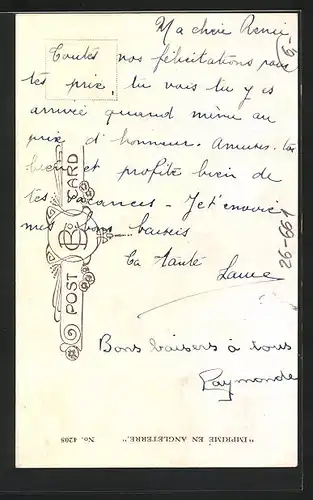 Ma chère Renée
Toutes nos félicitations pour
tes prix, tu vois tu y es
arrivée quand même au
prix d'honneur. Amuses-toi
bien et profite bien de
tes vacances - Je t'envoie
mes bons baisers
Ta tante
Bons baisers à tous
Raymonde
POST CARD
"IMPRIMÉ EN ANGLETERRE."
No. 4208